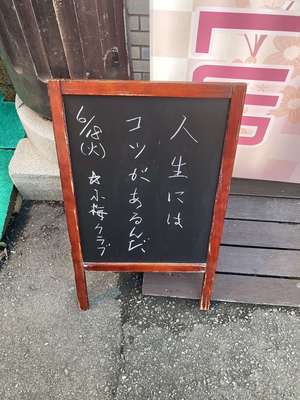 人生には
コツがあるんだ。
6/18(火)
☆小梅クラブ